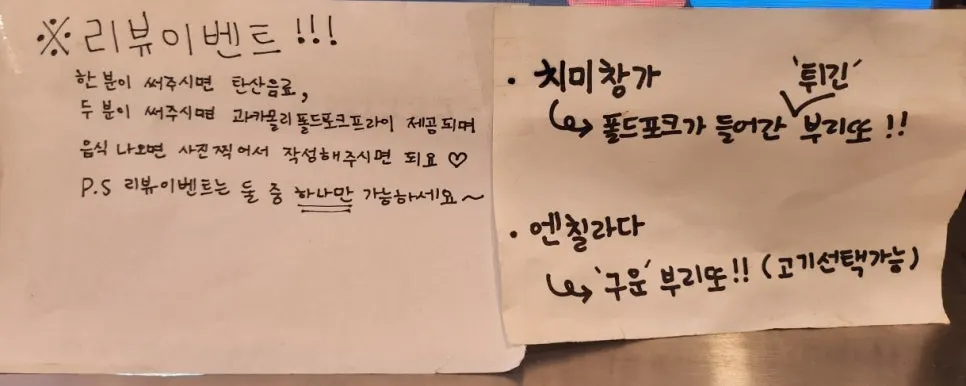 ※ 리뷰이벤트!!!
한 분이 써주시면 탄산음료,
두 분이 써주시면 과카몰리폴드포크프라이 제공되며
음식 나오면 사진찍어서 작성해주시면 되요 ♡
P.S 리뷰이벤트는 둘 중 하나만 가능하세요~
• 치미창가
↪ 풀드포크가 들어간 '튀긴' 부리또!!
• 엔칠라다
↪ '구운' 부리또!! (고기선택가능)